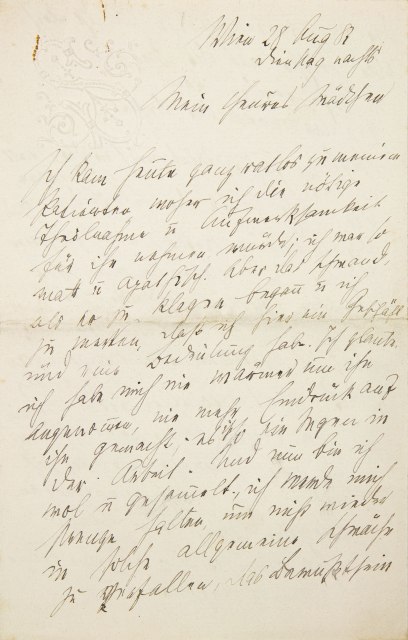 Wien 28 Aug 83
Dienstag nachts
Mein theures Mädchen
Ich kam heute ganz ratlos zu meinem
Patienten woher ich die nötige
Theilnahme u Aufmerksamkeit
für ihn nehmen würde; ich war so
matt u apathisch. Aber das schwand,
als er zu klagen begann u ich
zu merken, daß ich hier ein Geschäft
und eine Bedeutung habe. Ich glaube
ich habe mich nie wärmer um ihn
angenommen, nie mehr Eindruck auf
ihn gemacht; es ist ein Segen in
der Arbeit. Und nun bin ich
wol u gesammelt, ich werde mich
strenge halten, um nicht wieder
in solche allgemeine Schwäche
zu verfallen, das Bewußtsein